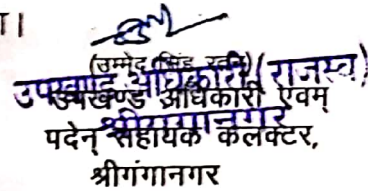 ा।
(उम्मेद सिंह रतनू)
उपखण्ड अधिकारी (राजस्व)
श्रीगंगानगर
उपखण्ड अधिकारी एवम्
पदेन् सहायक कलक्टर,
श्रीगंगानगर